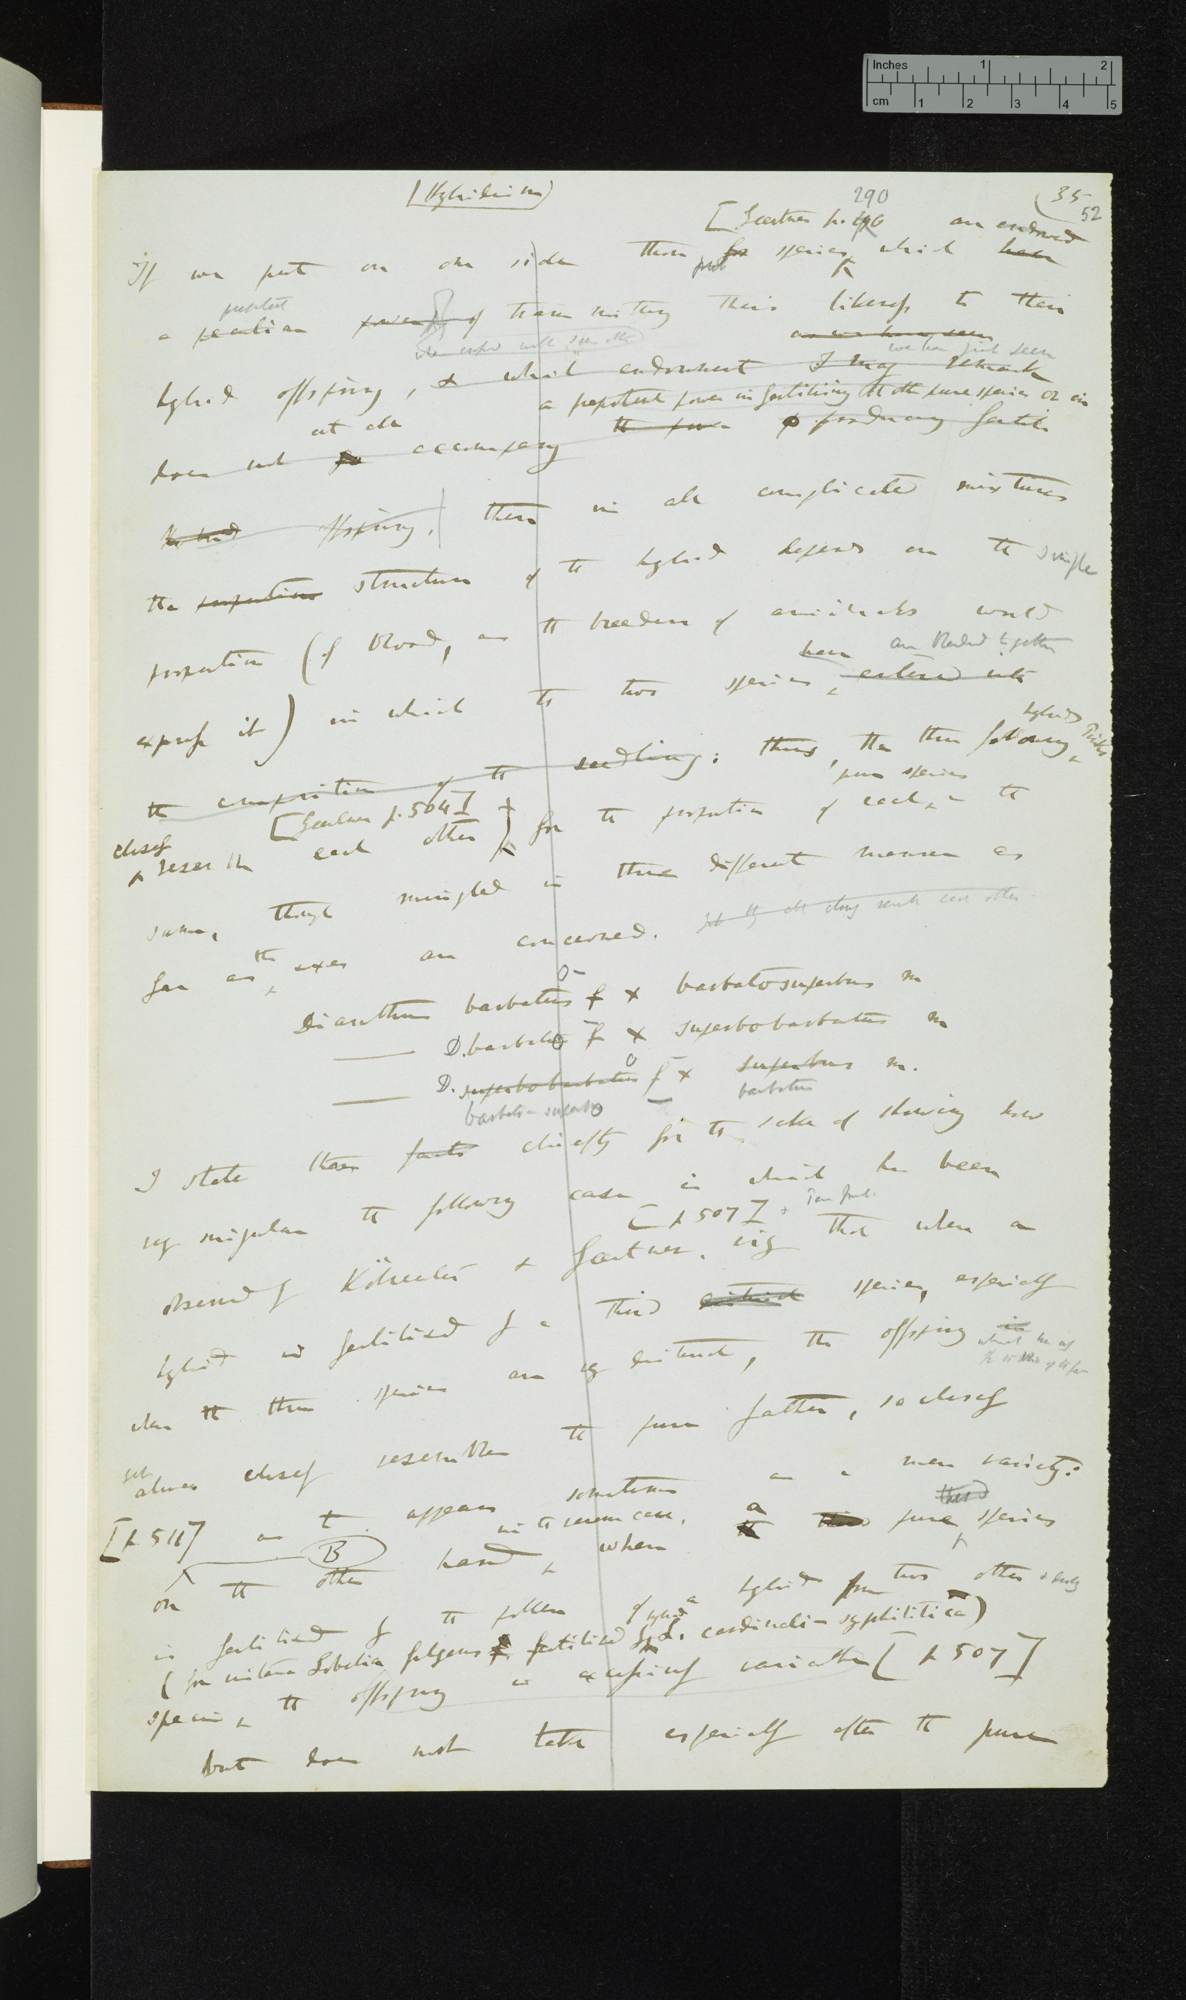 Inches 1 2
cm 1 2 3 4 5
(Hybridism)
290
(35
52
[Gaertner p. are endowed
If we put on one side those for species which have
prepotent
a peculiar power of transmitting their likeness to their
as we have seen
we have just seen
hybrid offspring, & which endowment I may remark
at all
a prepotent power in fertilising the other pure species or in
does not accompany the power producing fertile
hybrid offspring, then in all complicated mixtures
the proportions structure of the hybrid depends on the simple
proportion (of blood, as the breeders of animals would
have are blended together
express it) in which the two species, entered into
hybrids
the composition of the seedling: thus, the three following
pure species
[Gaertner p. 504]
closely
resemble each other for the proportion of each in the
same, though mingled in three different manners as
far as the sexes are concerned.
Dianthus barbatus f × barbato superbus m
D. barbato f × superbobarbatus m
D. superbobarbatus f × superbus m.
barbato-superbo
barbatus
I state these facts chiefly for the sake of showing how
very singular the following case is which has been
[p 507]
observed by Kölreuter & Gaertner, viz that when a
hybrid is fertilised by a third distinct species, especially
when the three species are very distinct, the offspring is
almost closely resembles the pure father, so closely
[p 511] as it appears sometimes as a mere variety:
B
third
on the other hand, when the third pure species
is fertilised by the pollen of a hybrid from two other
(for instance Lobelia fulgens fertilised by L. cardinali-syphilitica)
species, the offspring is excessively variable [p 507]
but does not take especially after the pure